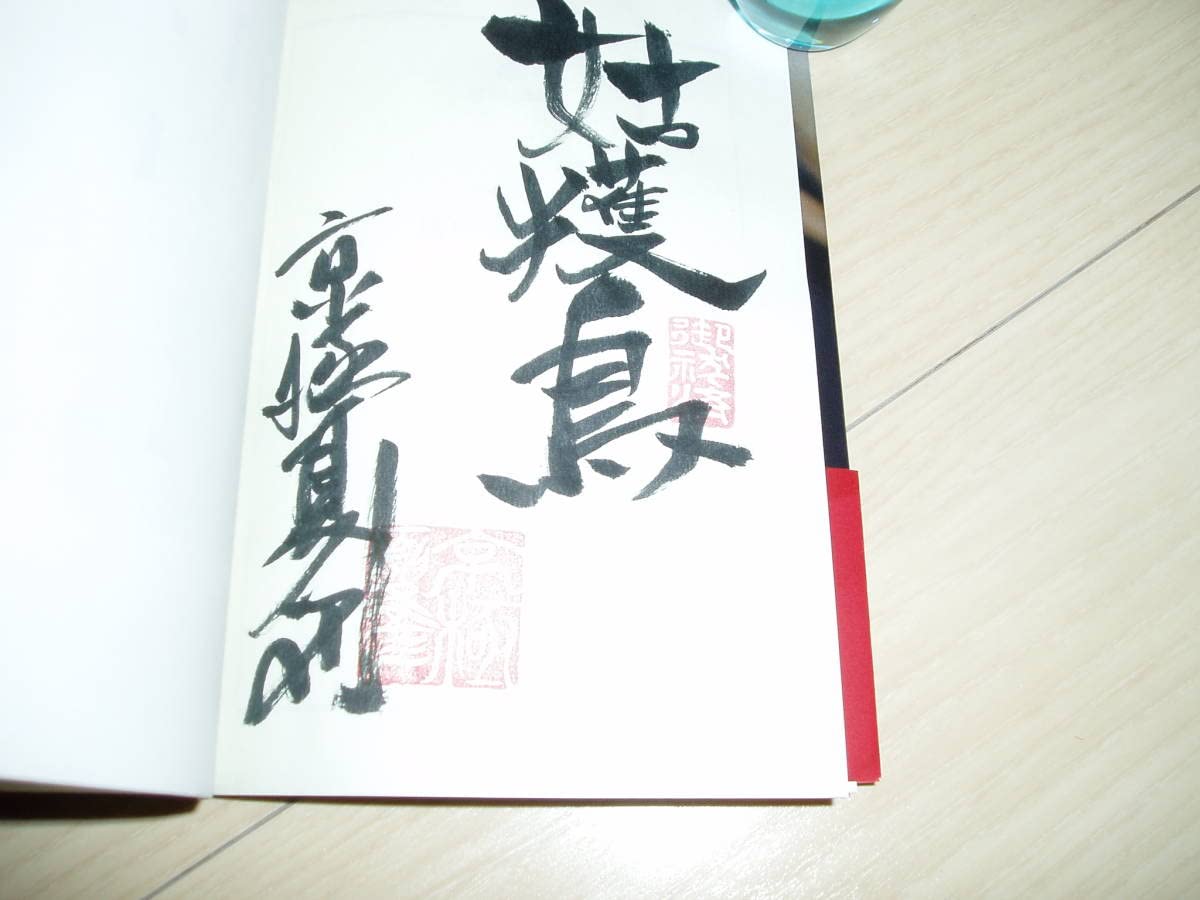 姑獲鳥
京極夏彦